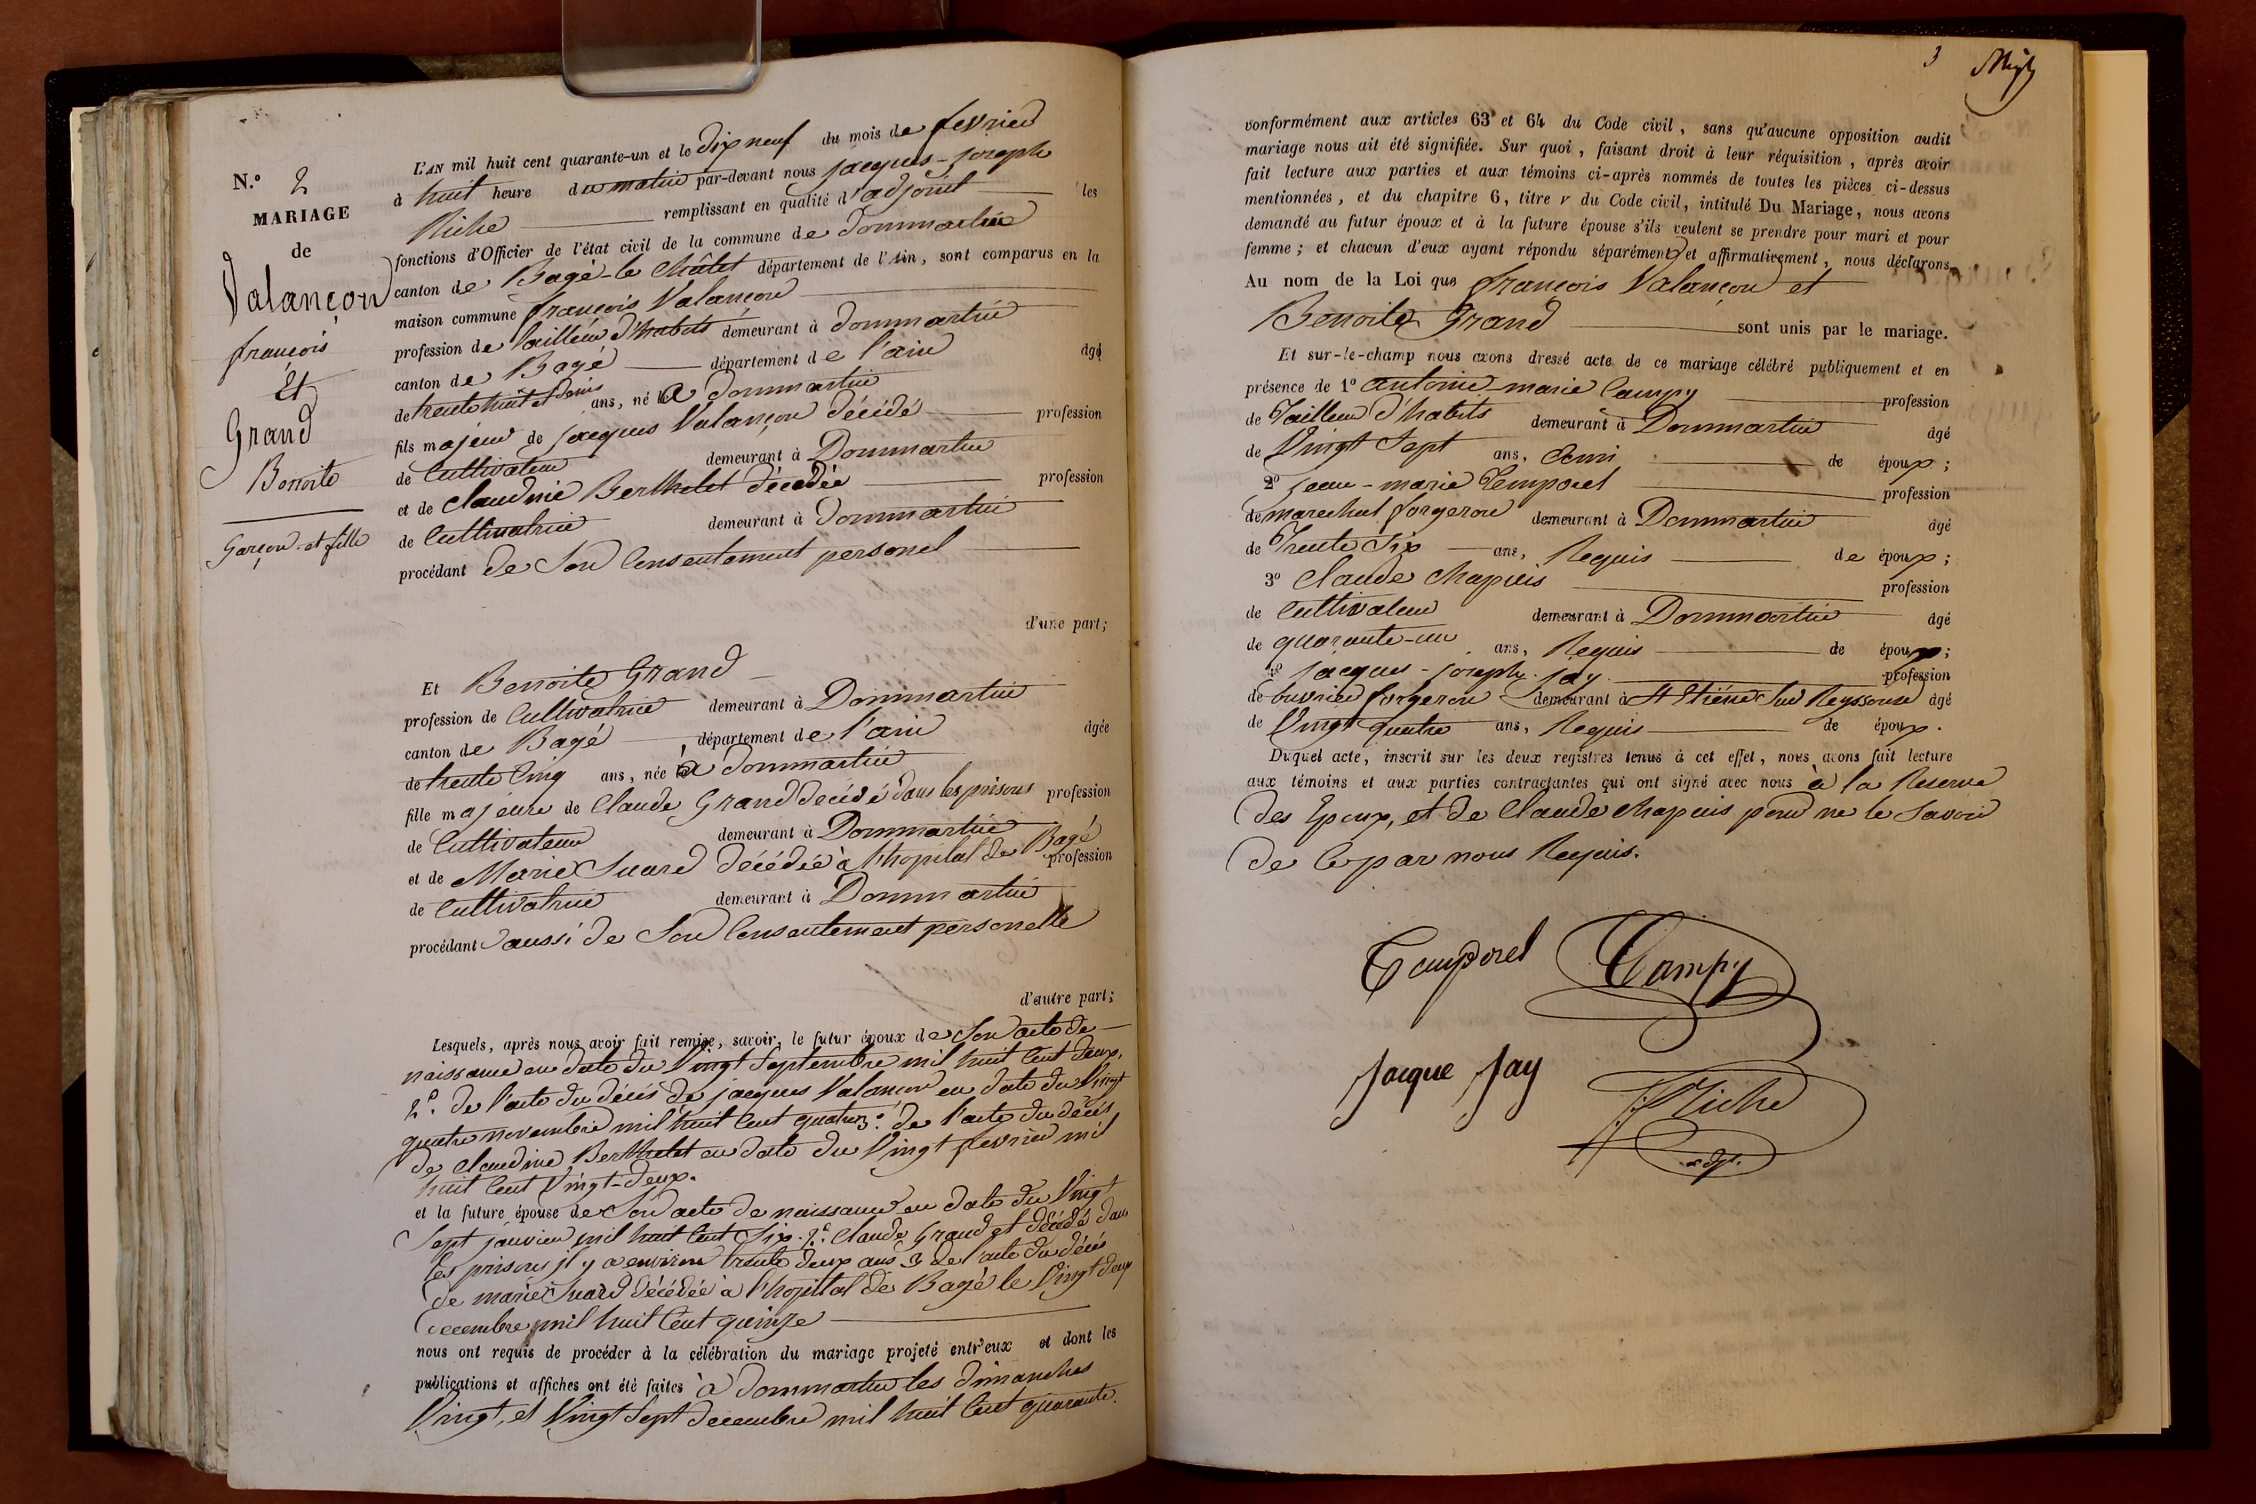 N.º 2
MARIAGE
de
Valançon
françois
Et
Grand
Benoite
Garçon et fille
L'AN mil huit cent quarante-un et le dix neuf du mois de fevrier
à huit heure du matin par-devant nous jacques-joseph
Riche remplissant en qualité d'adjoint les
fonctions d'Officier de l'état civil de la commune de Dommartin
canton de Bagé-le Châtel département de l'Ain, sont comparus en la
maison commune françois Valançon
profession de tailleur d'habits demeurant à dommartin
canton de Bagé département de l'ain âgé
de trente huit et demi ans, né à dommartin
fils majeur de jacques Valançon décédé profession
de Cultivateur demeurant à Dommartin
et de claudine Berthelet décédée profession
de Cultivatrice demeurant à Dommartin
procédant de Son Consentement personel
d'une part;
Et Benoite Grand
profession de Cultivatrice demeurant à Dommartin
canton de Bagé département de l'ain âgée
de trente Cinq ans, née à dommartin
fille majeure de Claude Grand décédé dans les prisons profession
de Cultivateur demeurant à Dommartin
et de Marie Suard décédée à l'hopital de Bagé profession
de Cultivatrice demeurant à Dommartin
procédant aussi de Son Consentement personelle
d'autre part;
Lesquels, après nous avoir fait remise, savoir, le futur époux de Son acte de
naissance en date du Vingt Septembre mil huit Cent deux,
2º. de l'acte du décès de jacques Valançon en date du Vingt
quatre novembre mil huit Cent quatre 3º. de l'acte du décès
de claudine Berthelet en date du Vingt fevrier mil
huit Cent Vingt-deux.
et la future épouse de Son acte de naissance en date du Vingt
Sept janvier mil huit Cent Six. 2º. Claude Grand est décédé dans
les prisons il y a environ trente deux ans 3º de l'acte du décès
de marie Suard décédée à l'hopital de Bagé le Vingt deux
decembre mil huit Cent quinze
nous ont requis de procéder à la célébration du mariage projeté entr'eux et dont les
publications et affiches ont été faites à dommartin les dimanches
Vingt, et Vingt Sept decembre mil huit Cent quarante.
3
conformément aux articles 63 et 64 du Code civil, sans qu'aucune opposition audit
mariage nous ait été signifiée. Sur quoi, faisant droit à leur réquisition, après avoir
fait lecture aux parties et aux témoins ci-après nommés de toutes les pièces ci-dessus
mentionnées, et du chapitre 6, titre v du Code civil, intitulé Du Mariage, nous avons
demandé au futur époux et à la future épouse s'ils veulent se prendre pour mari et pour
femme; et chacun d'eux ayant répondu séparément et affirmativement, nous déclarons
Au nom de la Loi que françois Valançon et
Benoite Grand sont unis par le mariage.
Et sur-le-champ nous avons dressé acte de ce mariage célébré publiquement et en
présence de 1º antoine-marie Campy profession
de Tailleur d'habits demeurant à Dommartin âgé
de Vingt Sept ans, ami de époux;
2º jean-marie Temporel profession
de marechal forgeron demeurant à Dommartin âgé
de Trente Six ans, Requis de époux;
3º Claude Chapuis profession
de Cultivateur demeurant à Dommartin âgé
de quarante-un ans, Requis de époux;
4º jacques-joseph jay profession
de ouvrier forgeron demeurant à St Etiéne Sur Reyssouse âgé
de Vingt quatre ans, Requis de époux.
Duquel acte, inscrit sur les deux registres tenus à cet effet, nous avons fait lecture
aux témoins et aux parties contractantes qui ont signé avec nous à la Reserve
des Epoux, et de Claude Chapuis pour ne le Savoir
de Ce par nous Requis.
Temporel Campy
Jacque Jay
J. Riche
adjt.